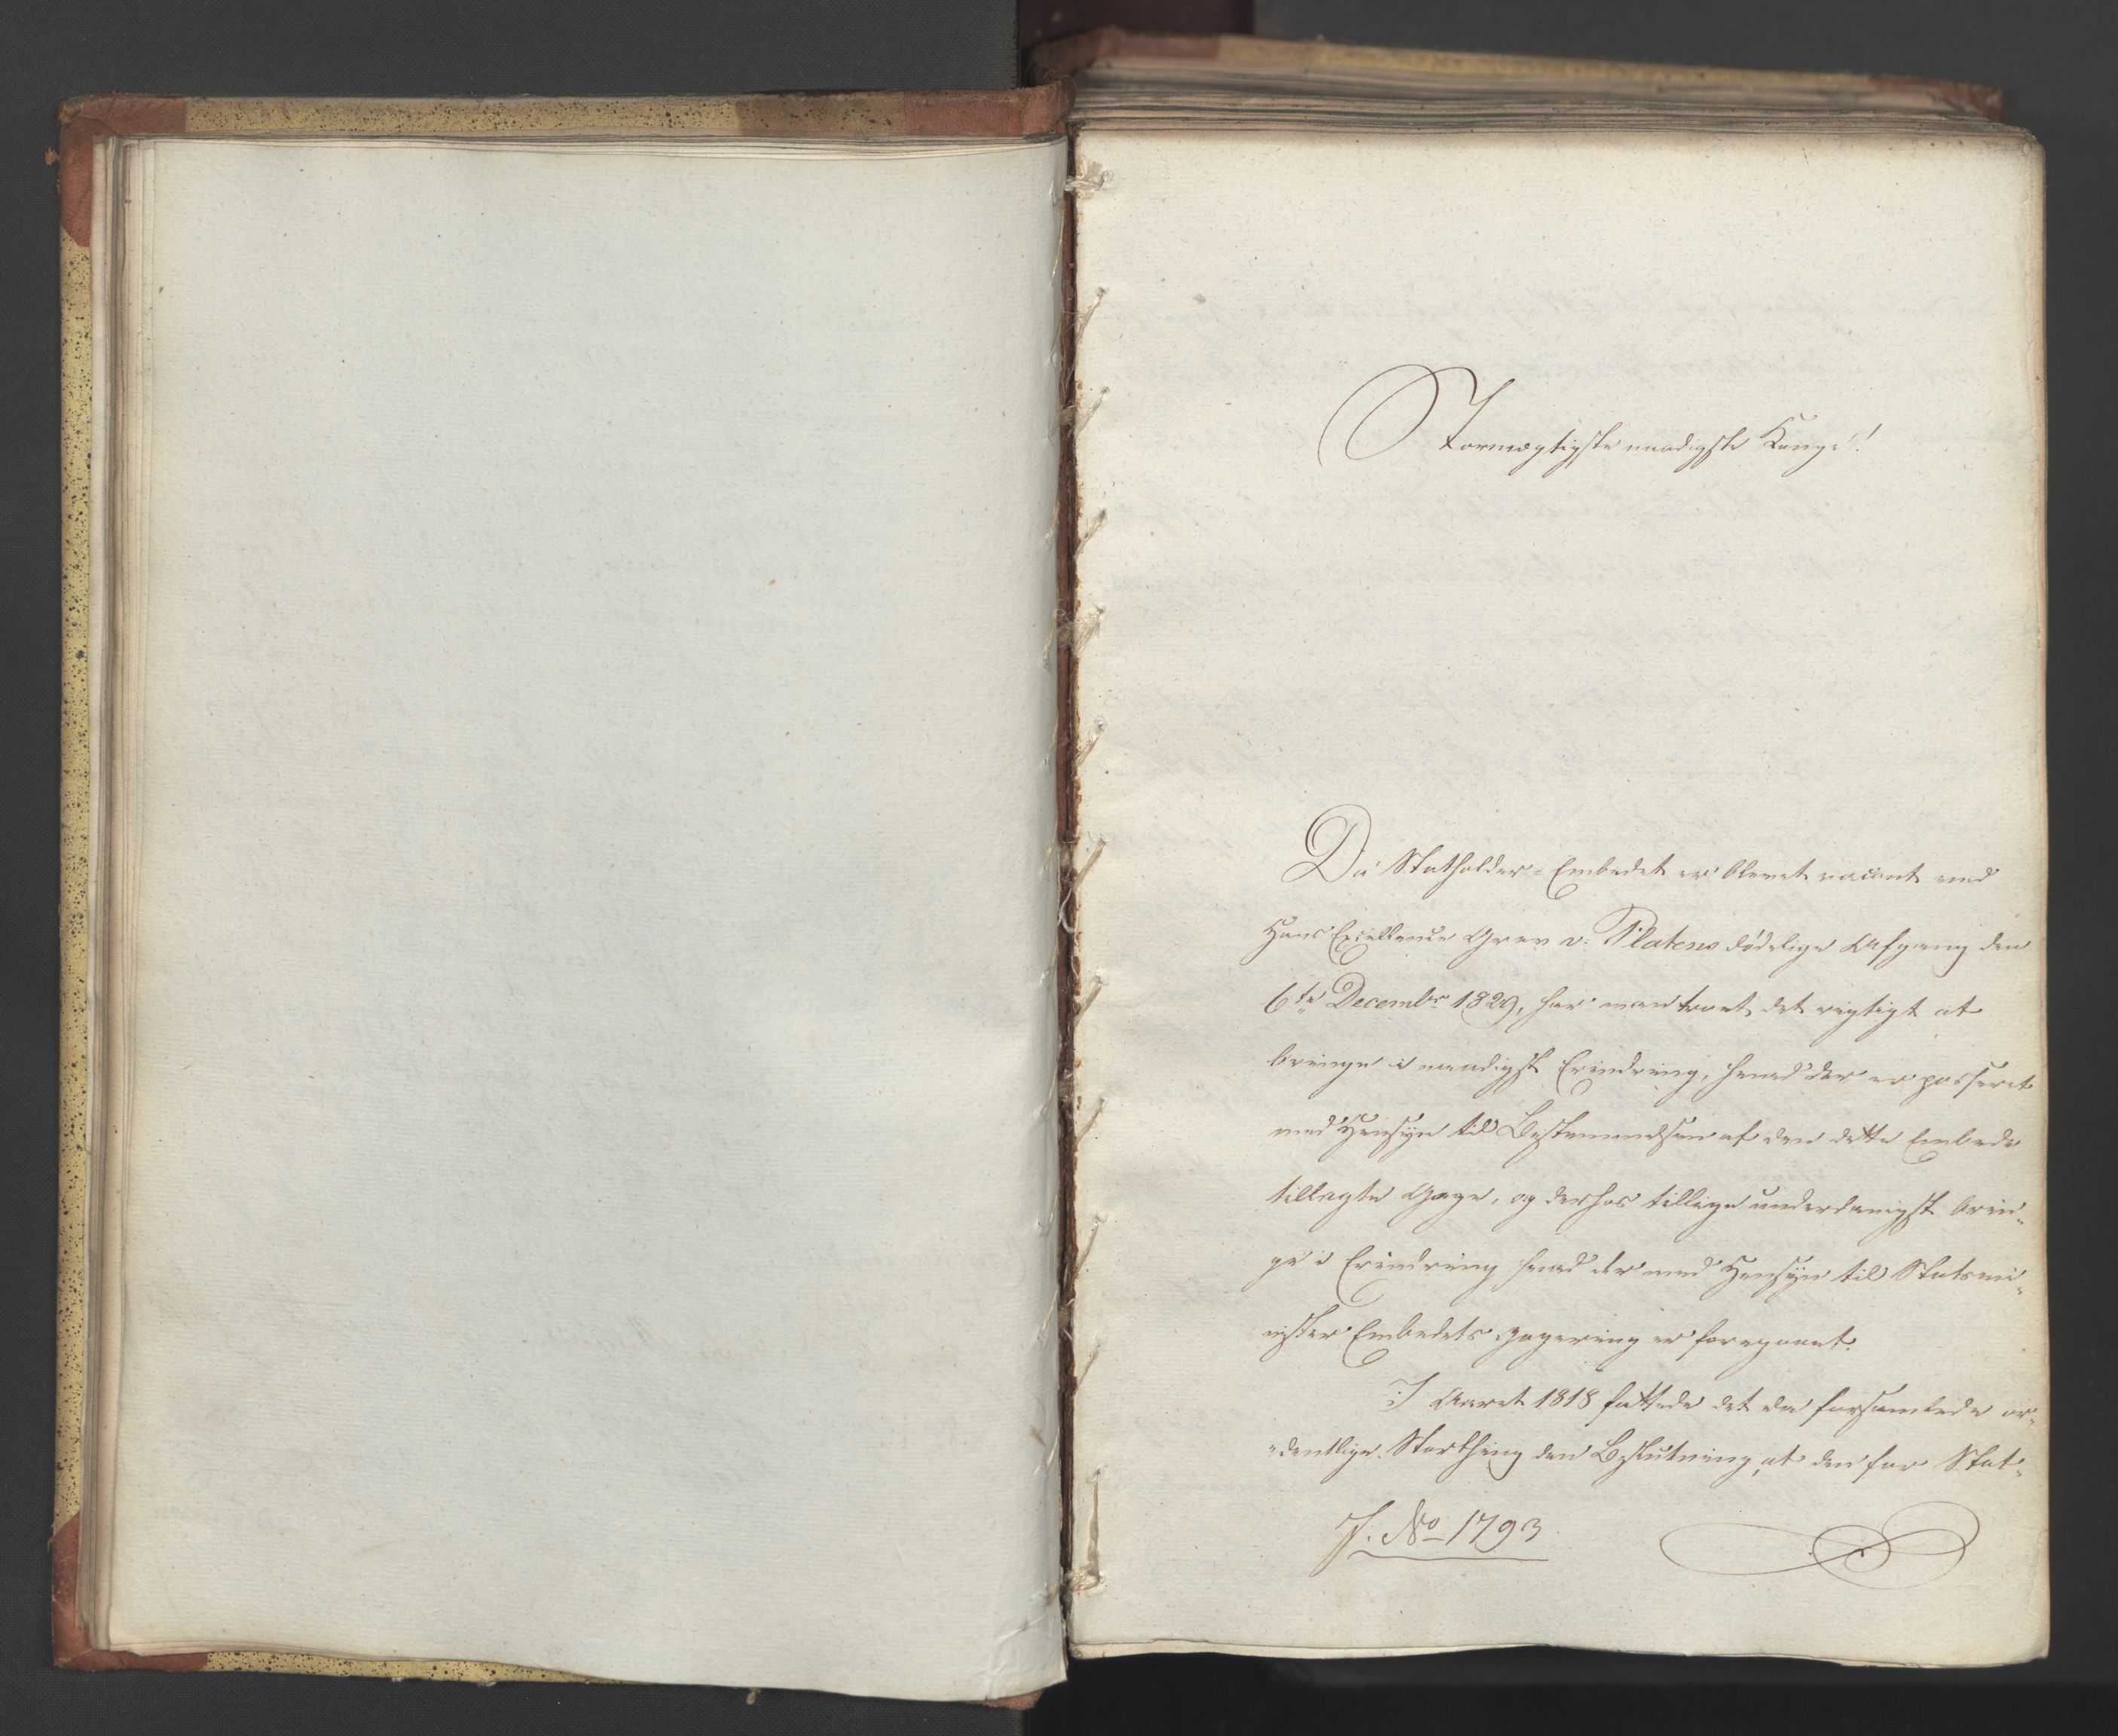 Stormægtigste naadigste Konge!
Da Statholder-Embedet er blevet vacant ved
Hans Excellence Grev v. Platens dødelige Afgang den
6te Decembr 1829, har man troet det rigtigt at
bringe i naadigst Erindring, hvad der er passeret
med Hensyn til Bestemmelsen af den dette Embede
tillagte Gage, og derhos tillige underdanigst brin-
ge i Erindring hvad der med Hensyn til Statsmi-
nister Embedets gagering er foregaaet.
I Aaret 1818 fattede det da forsamlede or-
dentlige Storthing den Beslutning, at den for Stat-
J. No 1793